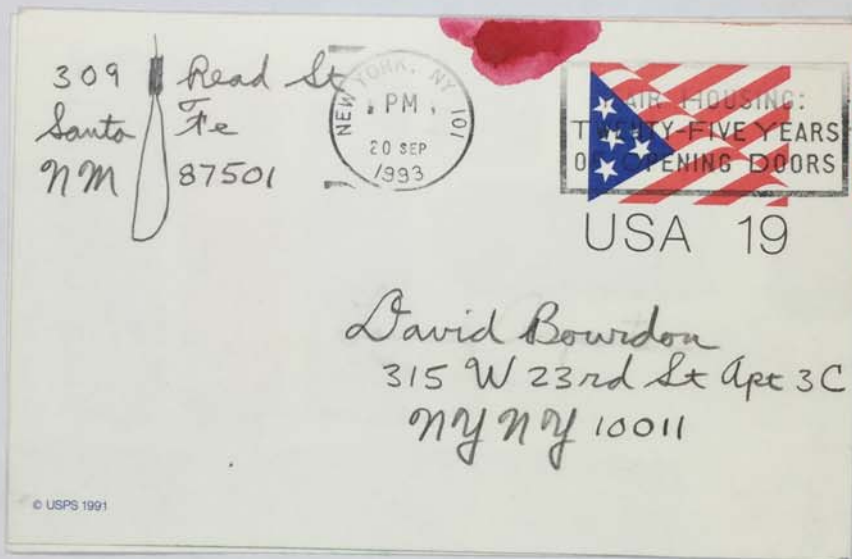 309 Read St
Santa Fe
NM 87501
NEW YORK, NY 101
PM
20 SEP
1993
AIR HOUSING:
TWENTY-FIVE YEARS
OF OPENING DOORS
USA 19
David Bourdon
315 W 23rd St Apt 3C
NY NY 10011
© USPS 1991